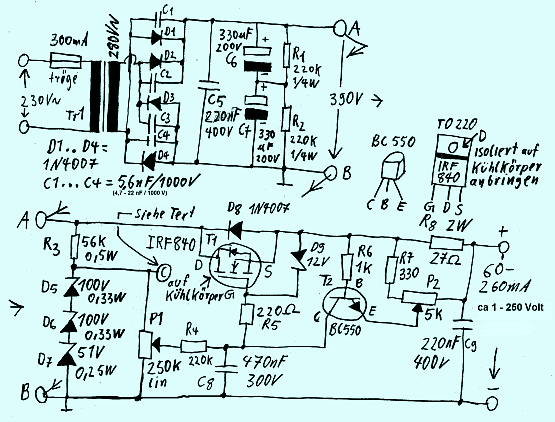 300mA
träge
280V~
230V~
Tr1
C1
D1
D2
C2
D3
C3
C4
D4
D1..D4=
1N4007
C1...C4 = 5,6nF/1000V
(4,7 - 22 nF / 1000 V)
C5
220nF
400V
330uF
200V
C6
+
−
+
−
C7
330
uF
200V
R1
220K
1/4W
R2
220K
1/4W
A
390V
B
BC 550
C B E
TO 220
D
IRF
840
G D S
Isoliert auf
Kühlkörper
anbringen
A
siehe Text
D8 1N4007
R8 2W
27Ω
+
R3
56K
0,5W
C
IRF840
T1
D
S
auf
Kühlkörper
G
D9
12V
R6
1K
R7
330
P2
5K
60-
260mA
ca 1 - 250 Volt
D5
100V
0,33W
D6
100V
0,33W
D7
51V
0,25W
P1
250K
lin
R4
220K
220Ω
R5
T2
B
C
E
BC550
470nF
300V
C8
220nF
400V
C9
B
−